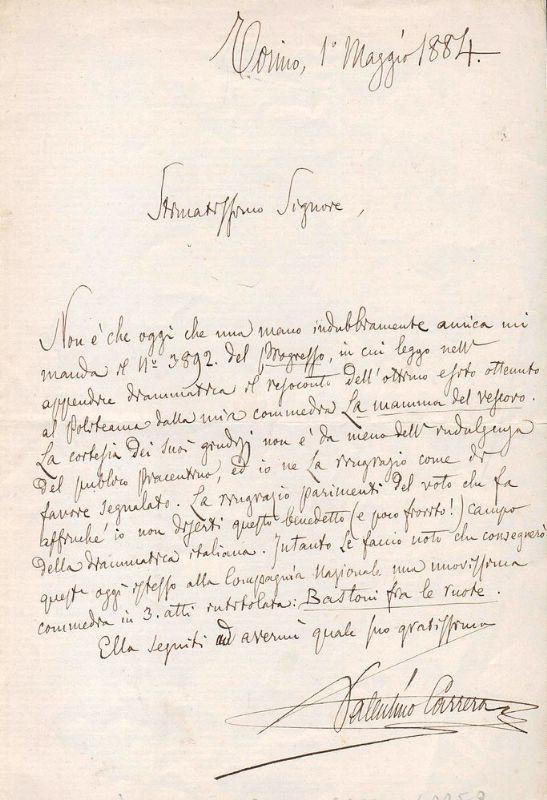 Torino, 1° Maggio 1884.
Stimatissimo Signore,
Non è che oggi che una mano indubbiamente amica mi
manda il N° 3892. del Progresso, in cui leggo nell'
appendice drammatica il resoconto dell'ottimo esito ottenuto
al Politeama dalla mia commedia La mamma del vescovo.
La cortesia dei suoi giudizj non è da meno dell'indulgenza
del pubblico Piacentino, ed io ne La ringrazio come di
favore segnalato. La ringrazio parimenti del voto che fa
affinchè io non diserti questo benedetto (e poco fiorito!) campo
della drammatica italiana. Intanto Le faccio noto che consegnerò
quest'oggi istesso alla Compagnia Nazionale una nuovissima
commedia in 3. atti intitolata: Bastoni fra le ruote.
Ella seguiti ad avermi quale suo gratissimo
Valentino Carrera